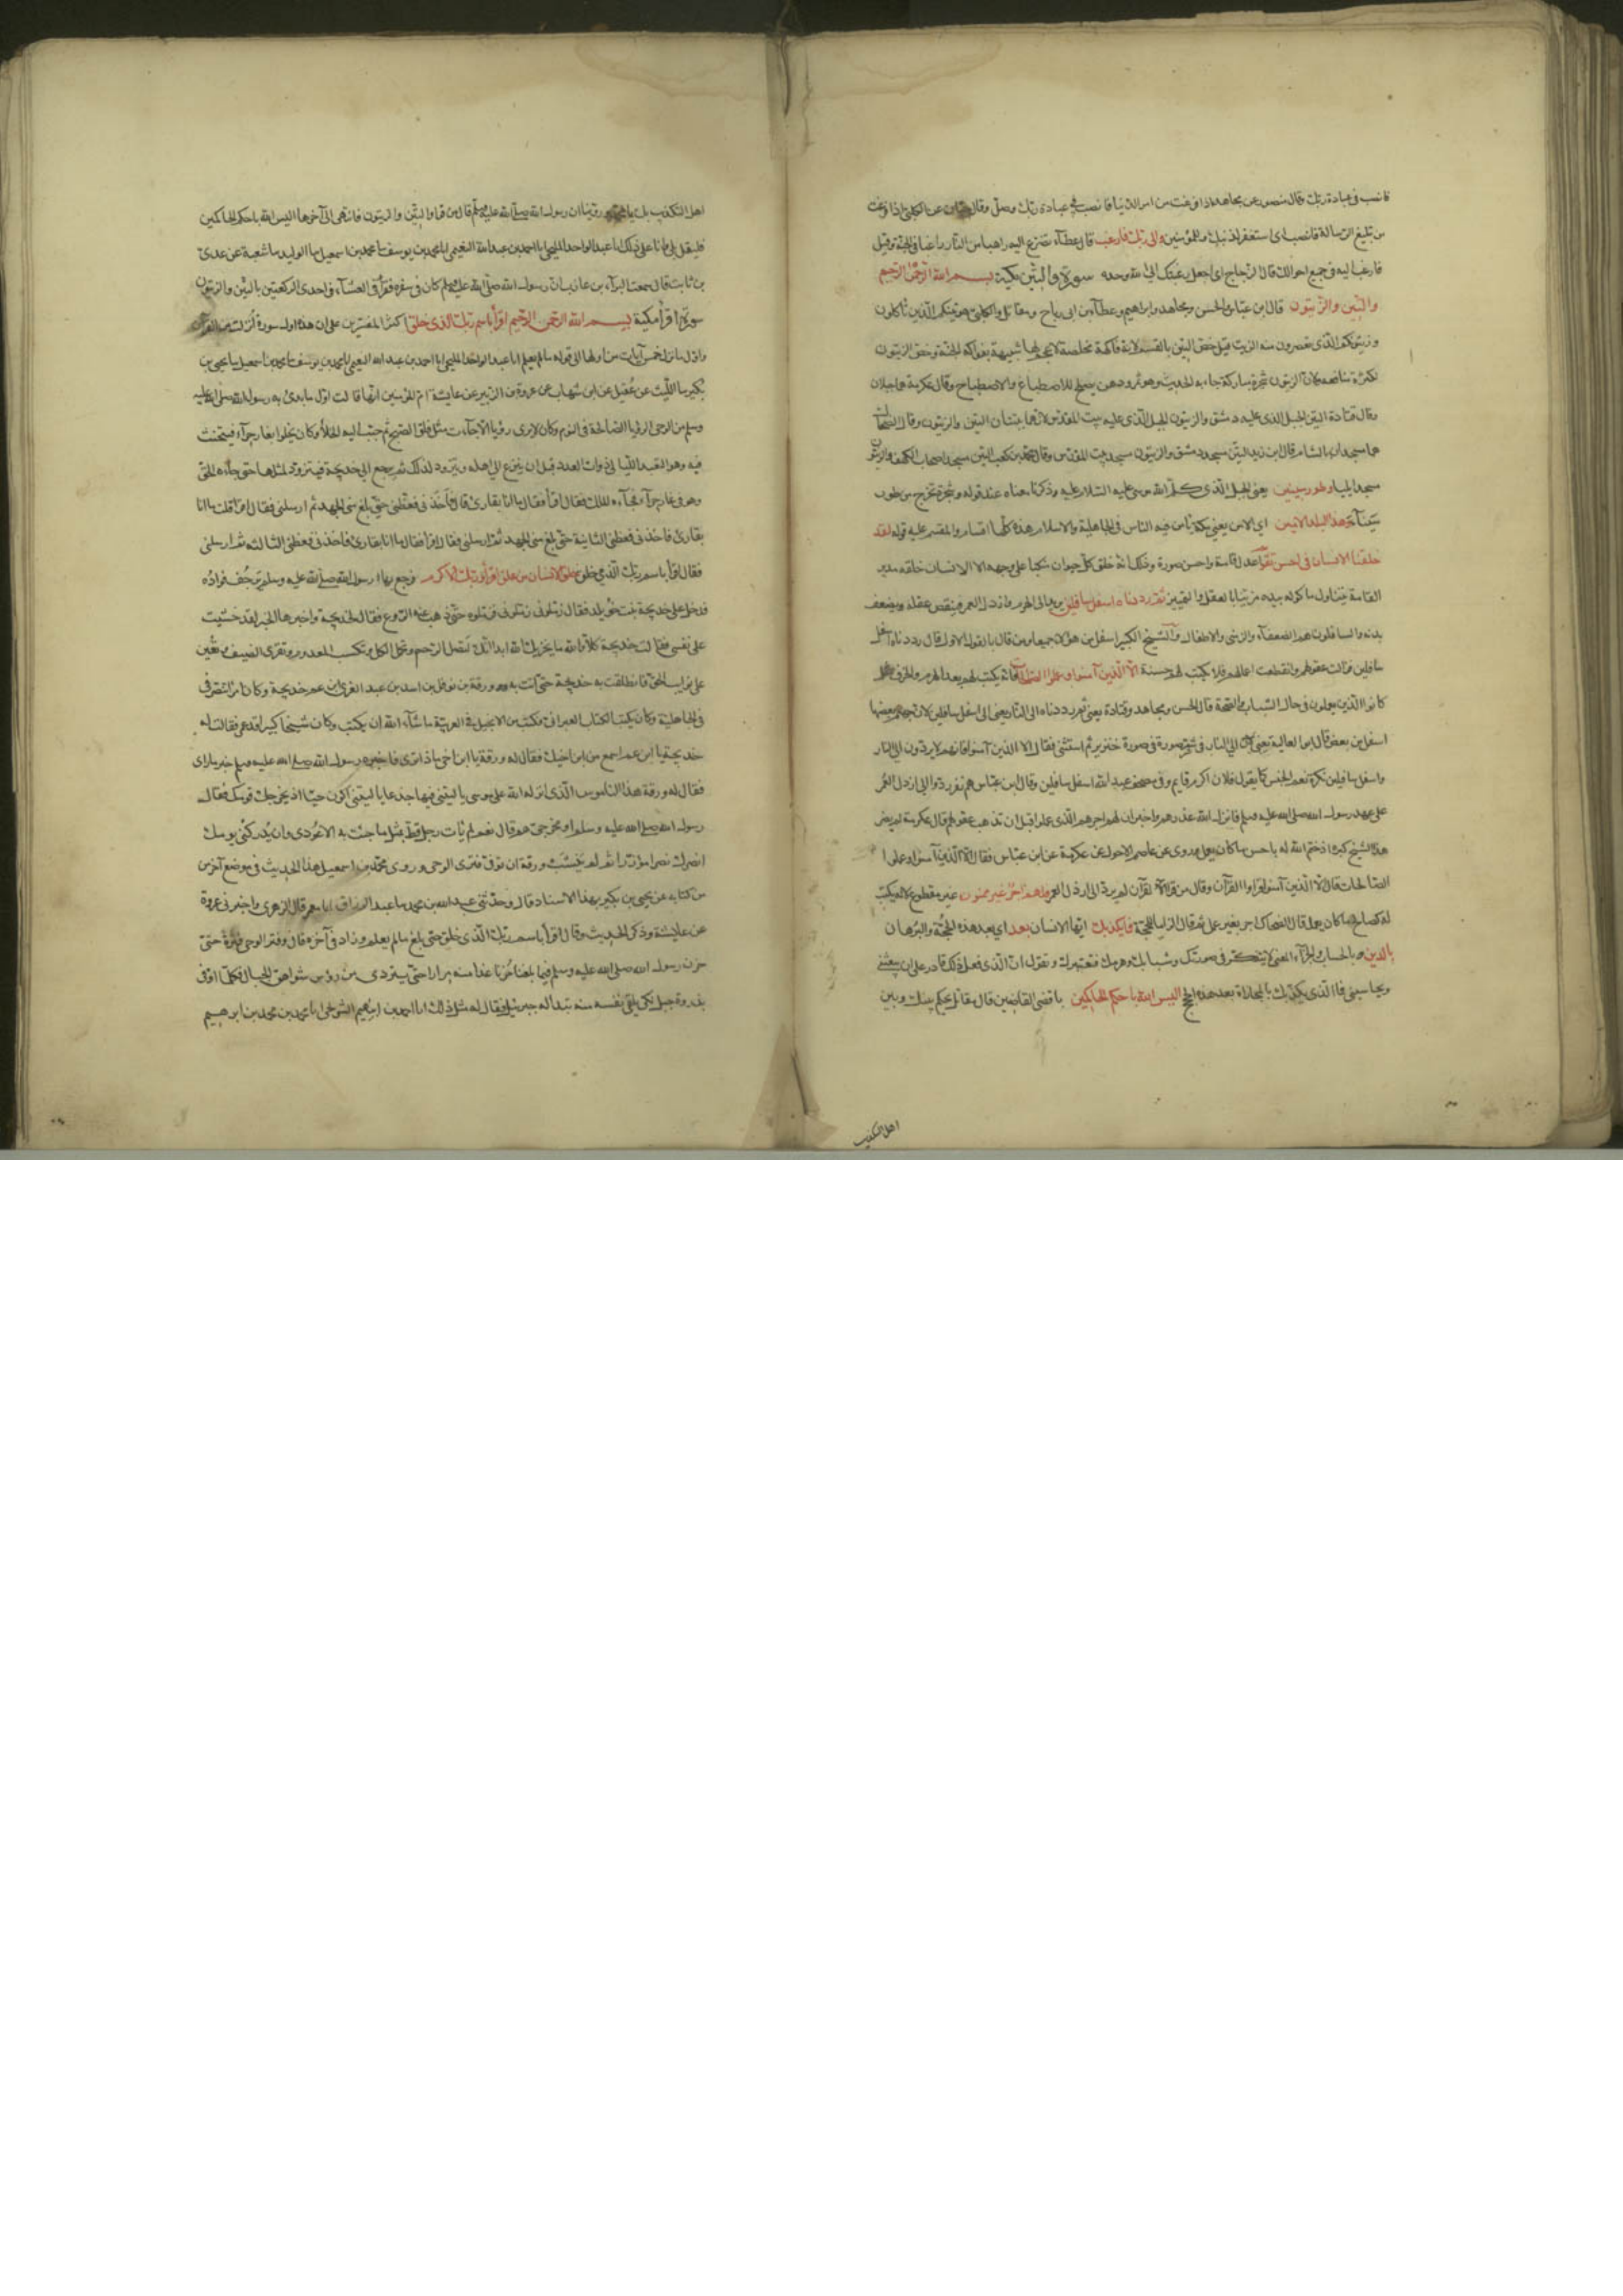 فانصب في عبادة ربك وقال منصور عن مجاهد اذا فرغت من امر الدنيا فانصب في عبادة ربك وصل وقال حيان عن الكلبي اذا فرغت
من تبليغ الرسالة فانصب اى استغفر لذنبك وللمؤمنين والى ربك فارغب قال عطآء تضرع اليه راهبا من النار راغبا في الجنة وقيل
فارغب اليه في جميع احوالك قال الزجاج اي اجعل رغبتك الى الله وحده سورة والتين مكية بسم الله الرحمن الرحيم
والتين والزيتون قال ابن عباس والحسن ومجاهد وابراهيم وعطآء بن ابى رباح ومقاتل والكلبي هو تينكم الذي تأكلون
وزيتونكم الذي تعصرون منه الزيت قيل خص التين بالقسم لانه فاكهة مخلصة لا عجم لها شبيهة بفواكه الجنة وخص الزيتون
لكثرة منافعه لان الزيتون شجرة مباركة جاء به الحديث وهو ثمر ودهن يصلح للاصطباغ والاصطباح وقال عكرمة هما جبلان
وقال قتادة التين الجبل الذي عليه دمشق والزيتون الجبل الذي عليه بيت المقدس لانهما ينبتان التين والزيتون وقال الضحاك
هما مسجدان بالشام قال ابن زيد التين مسجد دمشق والزيتون مسجد بيت المقدس وقال محمد بن كعب التين مسجد اصحاب الكهف والزيتون
مسجد ايليا وطور سينين يعنى الجبل الذي كلم الله موسى عليه السلام عليه وذكرنا معناه عند قوله وشجرة تخرج من طور
سيناء وهذا البلد الامين اي الامن يعني مكة يأمن فيه الناس في الجاهلية والاسلام هذه كلها اقسام والمقسم عليه قوله لقد
خلقنا الانسان في احسن تقويم اعدل قامة واحسن صورة وذلك انه خلق كل حيوان منكبا على وجهه الا الانسان خلقه مديد
القامة يتناول ماكوله بيده مزينا بالعقل والتمييز ثم رددناه اسفل سافلين يريد الى الهرم وارذل العمر فينقص عقله ويضعف
بدنه والسافلون هم الضعفآء والزمنى والاطفال والشيخ الكبير اسفل من هؤلاء جميعا ومن قال بالقول الاول قال رددناه اسفل
سافلين فزالت عقولهم وانقطعت اعمالهم فلا يكتب لهم حسنة الا الذين آمنوا وعملوا الصالحات فانه يكتب لهم بعد الهرم والخرف مثل
كانوا الذين يعملون في حال الشباب والصحة قال الحسن ومجاهد وقتادة يعني ثم رددناه الى النار يعني الى اسفل سافلين لان جهنم بعضها
اسفل من بعض قال ابو العالية يعني الى النار في شر صورة في صورة خنزير ثم استثنى فقال الا الذين آمنوا فانهم لا يردون الى النار
واسفل سافلين نكرة تعم الجنس كما يقول فلان اكرم قايم وفي مصحف عبد الله اسفل سافلين وقال ابن عباس هم نفر ردوا الى ارذل العمر
على عهد رسول الله صلى الله عليه وسلم فانزل الله عذرهم واخبر ان لهم اجرهم الذي عملوا قبل ان تذهب عقولهم قال عكرمة لم يضر
هذا الشيخ كبره اذ ختم الله له باحسن ما كان يعمل وروى عن عاصم الاحول عن عكرمة عن ابن عباس فقال الا الذين آمنوا وعملوا
الصالحات قال الا الذين آمنوا قراوا القرآن وقال من قرأ القرآن لم يرد الى ارذل العمر فلهم اجر غير ممنون غير مقطوع لانه يكتب
له كصالح ما كان يعمل قال الضحاك اجر بغير عمل ثم قال الزاما للحجة فما يكذبك ايها الانسان بعد اي بعد هذه الحجة والبرهان
بالدين بالحساب والجزآء المعنى الا تتفكر في صورتك وشبابك وهرمك فتعتبر وتقول ان الذي فعل ذلك قادر على ان يبعثني
ويحاسبني فما الذي يكذبك بالمجازاة بعد هذه الحجج اليس الله باحكم الحاكمين باقضى القاضين قال مقاتل يحكم بينك وبين
اهل التكذيب
اهل التكذيب بك يا محمد وروينا ان رسول الله صلى الله عليه وسلم قال من قرا والتين والزيتون فانتهى الى آخرها اليس الله باحكم الحاكمين
فليقل بلى وانا على ذلك انا عبد الواحد المليحي انا احمد بن عبد الله النعيمي انا محمد بن يوسف نا محمد بن اسمعيل نا ابو الوليد نا شعبة عن عدي
بن ثابت قال سمعت البرآء بن عازب ان رسول الله صلى الله عليه وسلم كان في سفر فقرأ في العشآء في احدى الركعتين بالتين والزيتون
سورة اقرأ مكية بسم الله الرحمن الرحيم اقرأ باسم ربك الذي خلق اكثر المفسرين على ان هذه اول سورة انزلت من القرآن
واول ما نزل خمس آيات من اولها الى قوله ما لم يعلم انا عبد الواحد المليحي انا احمد بن عبد الله النعيمي انا محمد بن يوسف نا محمد بن اسمعيل نا يحيى بن
بكير نا الليث عن عقيل عن ابن شهاب عن عروة بن الزبير عن عايشة ام المؤمنين انها قالت اول ما بدئ به رسول الله صلى الله عليه
وسلم من الوحى الرؤيا الصالحة في النوم وكان لا يرى رؤيا الا جاءت مثل فلق الصبح ثم حبب اليه الخلاء وكان يخلوا بغار حرآء فيتحنث
فيه وهو التعبد الليالي ذوات العدد قبل ان ينزع الى اهله ويتزود لذلك ثم يرجع الى خديجة فيتزود لمثلها حتى جاءه الحق
وهو في غار حرآء فجآءه الملك فقال اقرأ فقال ما انا بقارئ قال فأخذني فغطني حتى بلغ مني الجهد ثم ارسلني فقال اقرأ قلت ما انا
بقارئ فاخذني فغطني الثانية حتى بلغ مني الجهد ثم ارسلني فقال اقرأ فقال ما انا بقارئ فاخذني فغطني الثالثة ثم ارسلني
فقال اقرأ باسم ربك الذي خلق خلق الانسان من علق اقرأ وربك الاكرم فرجع بها رسول الله صلى الله عليه وسلم ترجف فؤاده
فدخل على خديجة بنت خويلد فقال زملوني زملوني فزملوه حتى ذهب عنه الروع فقال لخديجة واخبرها الخبر لقد خشيت
على نفسي فقالت خديجة كلا والله ما يخزيك الله ابدا انك لتصل الرحم وتحمل الكل وتكسب المعدوم وتقرى الضيف وتعين
على نوايب الحق فانطلقت به خديجة حتى اتت به ورقة بن نوفل بن اسد بن عبد العزى ابن عم خديجة وكان امرأ تنصر في
في الجاهلية وكان يكتب الكتاب العبراني فكتب من الانجيل في العربية ما شآء الله ان يكتب وكان شيخا كبيرا قد عمي فقالت له
خديجة يا ابن عم اسمع من ابن اخيك فقال له ورقة يا ابن اخي ماذا ترى فاخبره رسول الله صلى الله عليه وسلم خبر ما راى
فقال له ورقة هذا الناموس الذي انزله الله على موسى يا ليتني فيها جذعا يا ليتني اكون حيا اذ يخرجك قومك فقال
رسول الله صلى الله عليه وسلم او مخرجي هم قال نعم لم يأت رجل قط بمثل ما جئت به الا عودي وان يدركني يومك
انصرك نصرا مؤزرا ثم لم ينشب ورقة ان توفى وفتر الوحى وروى محمد بن اسمعيل هذا الحديث في موضع آخر من
من كتابه عن يحيى بن بكير بهذا الاسناد قال وحدثني عبد الله بن محمد نا عبد الرزاق انا معمر قال الزهري واخبرني عروة
عن عايشة وذكر الحديث وقال اقرأ باسم ربك الذي خلق حتى بلغ ما لم يعلم وزاد في آخره قال وفتر الوحى فترة حتى
حزن رسول الله صلى الله عليه وسلم فيما بلغنا حزنا غدا منه مرارا حتى يتردى من رؤس شواهق الجبال فكلما اوفى
بذروة جبل لكي يلقى نفسه منه تبدا له جبريل فقال له مثل ذلك انا احمد بن ابراهيم الشريحي انا محمد بن محمد بن ابرهيم